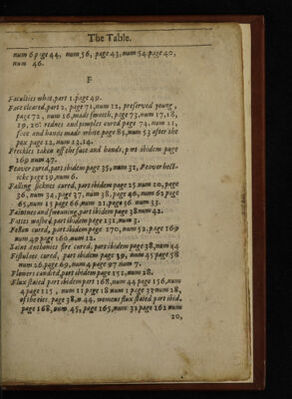 The Table.
num 6 page 44, num 56, page 43, num 54 page 40,
num 46.
F
Faculties what, part 1. page 49.
Face cleared, part 2, page 71, num 12, preserved young,
page 72, num 16, made smooth, page 73, num 17, 18,
19, 20. rednes and pimples cured page 74, num 21,
face and hands made white page 85, num 53 after the
pox page 12, num 13, 14.
Freckles taken off the face and hands, part ibidem page
169 num 47.
Feaver cured, part ibidem page 35, num 31, Feaver hect-
icke page 19, num 6.
Falling sicknes cured, part ibidem page 25 num 10, page
36, num 34, page 37, num 38, page 46, num 62 page
65, num 15 page 66, num 21, page 56 num 33.
Faintnes and swouning, part ibidem page 38 num 42.
Fattes washed part ibidem page 131, num 3.
Fellon cured, part ibidem page 170, num 52, page 169
num 49 page 160, num 12.
Saint Anthonies fire cured, part ibidem page 38, num 44
Fistulaes cured, part ibidem page 39, num 45 page 58
num 26. page 69, num 4 page 97 num 7.
Flowers candied, part ibidem page 151, num 28.
Flux staied part ibidem part 168, num 44 page 156, num
4 page 115, num 11 page 18 num 1 page 32 num 28,
of the eies, page 38, n 44, womens flux staied part ibid.
page 168, num 45, page 165, num 32 page 162 num
20,